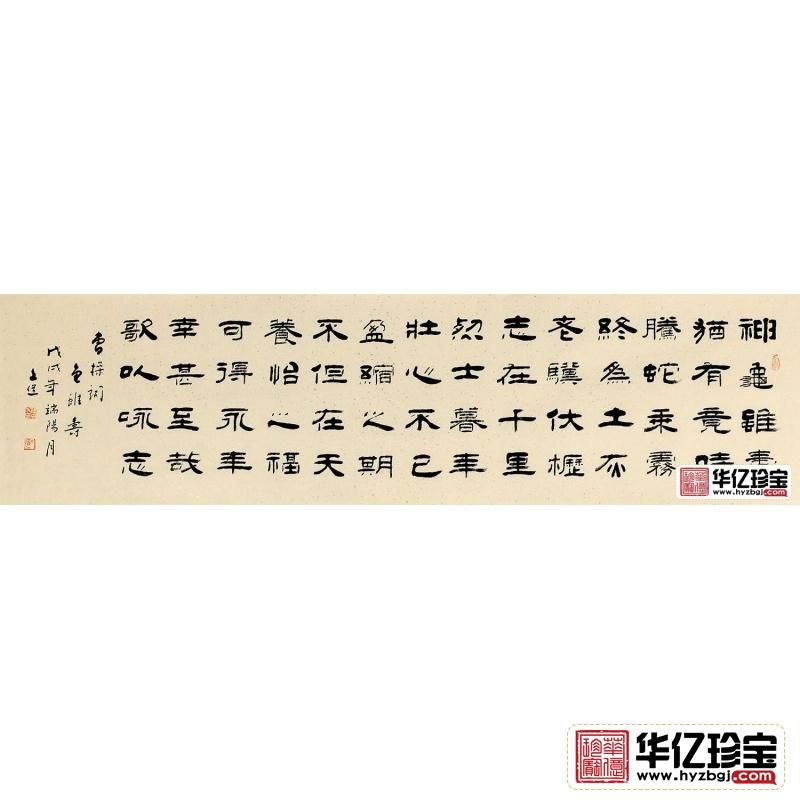 神龜雖壽
猶有竟時
騰蛇乘霧
終爲土灰
老驥伏櫪
志在千里
烈士暮年
壯心不已
盈縮之期
不但在天
養怡之福
可得永年
幸甚至哉
歌以咏志
曹操詞
龜雖壽
戊戌年端陽月
华亿珍宝
www.hyzbgj.com
华亿珍宝
www.hyzbgj.com